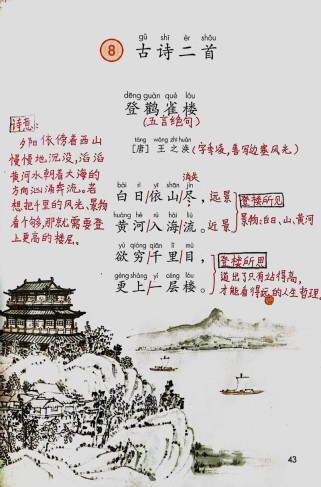 gǔ shī èr shǒu
8 古诗二首
dēng guàn què lóu
登鹳雀楼
(五言绝句)
táng wáng zhī huàn
[唐] 王之涣 (字季凌,善写边塞风光)
诗意:
夕阳依傍着西山
慢慢地沉没,滔滔
黄河水朝着大海的
方向汹涌奔流。若
想把千里的风光、景物
看个够,那就需要登
上更高的楼层。
消失
bái rì yī shān jìn
白日/依/山尽,远景
huáng hé rù hǎi liú
黄河/入/海流。近景
登楼所见
景物:白日、山、黄河
yù qióng qiān lǐ mù
欲穷/千里/目,
gèng shàng yì céng lóu
更上/一层/楼。
登楼所思
道出了只有站得高,
才能看得远的人生哲理。
43